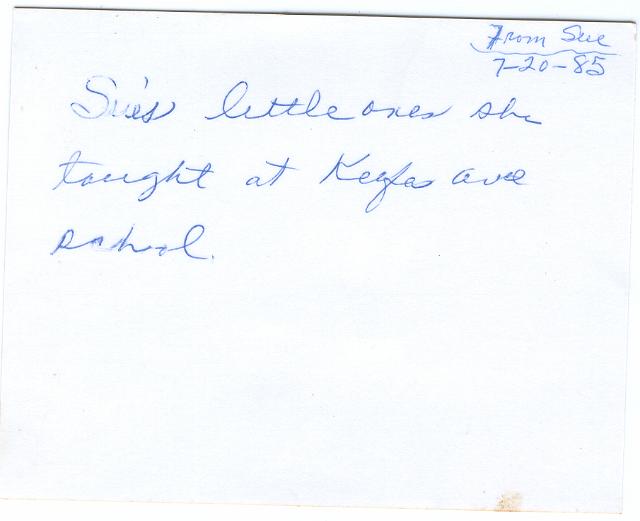 From Sue
7-20-85
Sue's little ones she
tought at Keyes ave
school.